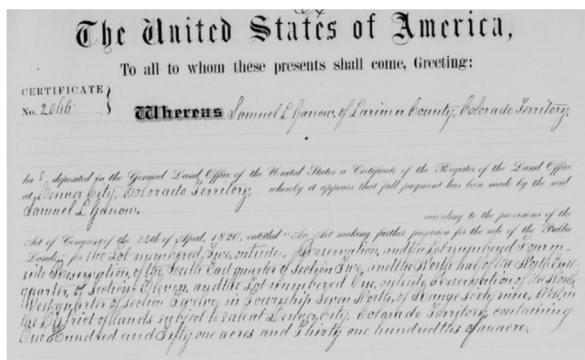 The United States of America,
To all to whom these presents shall come, Greeting:
CERTIFICATE
No. 2066
Whereas Samuel L Ganow, of Larimer County, Colorado Territory,
ha s deposited in the General Land Office of the United States a Certificate of the Register of the Land Office
at Denver City, Colorado Territory, whereby it appears that full payment has been made by the said
Samuel L Ganow,
according to the provisions of the
Act of Congress of the 24th of April, 1820, entitled "An Act making further provision for the sale of the Public
Lands," for the Lot numbered Five, outside Reservation, and the Lot numbered Four in-
side Reservation, of the South East quarter of Section Two, and the North half of the North East
quarter, of Section Eleven, and the Lot numbered One, outside Reservation of the North
West quarter of Section Twelve, in Township Seven North, of Range Sixty nine, West, in
the District of Lands subject to sale at Denver City, Colorado Territory, containing
One Hundred and Fifty one acres and Thirty one hundredths of an acre.